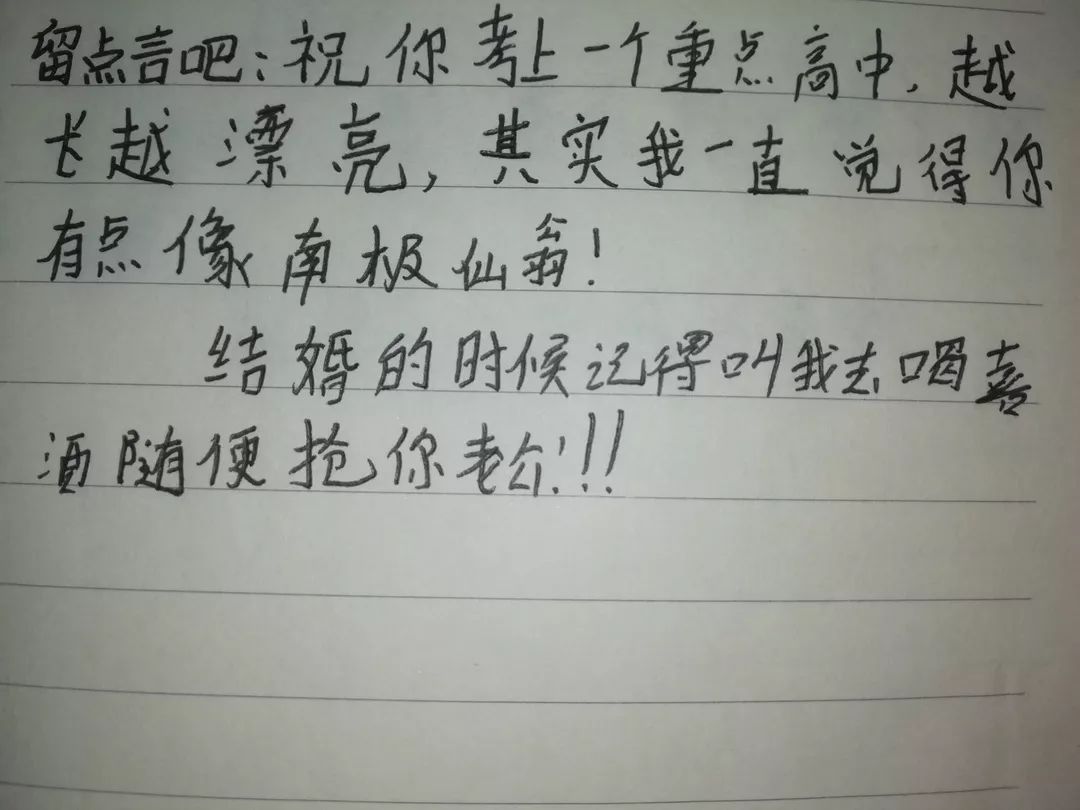 留点言吧:祝你考上一个重点高中,越
长越漂亮,其实我一直觉得你
有点像南极仙翁!
结婚的时候记得叫我去喝喜
酒随便抢你老公!!!